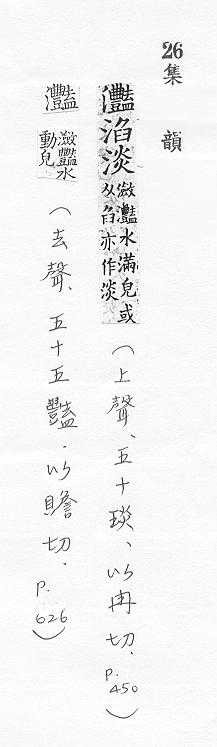 26集韻
灩淊淡 瀲灩水滿皃或
从臽亦作淡(上聲、五十琰、以冉切. p.450)
灩 瀲灩水
動皃(去聲、五十五豔.以贍切. p.626)